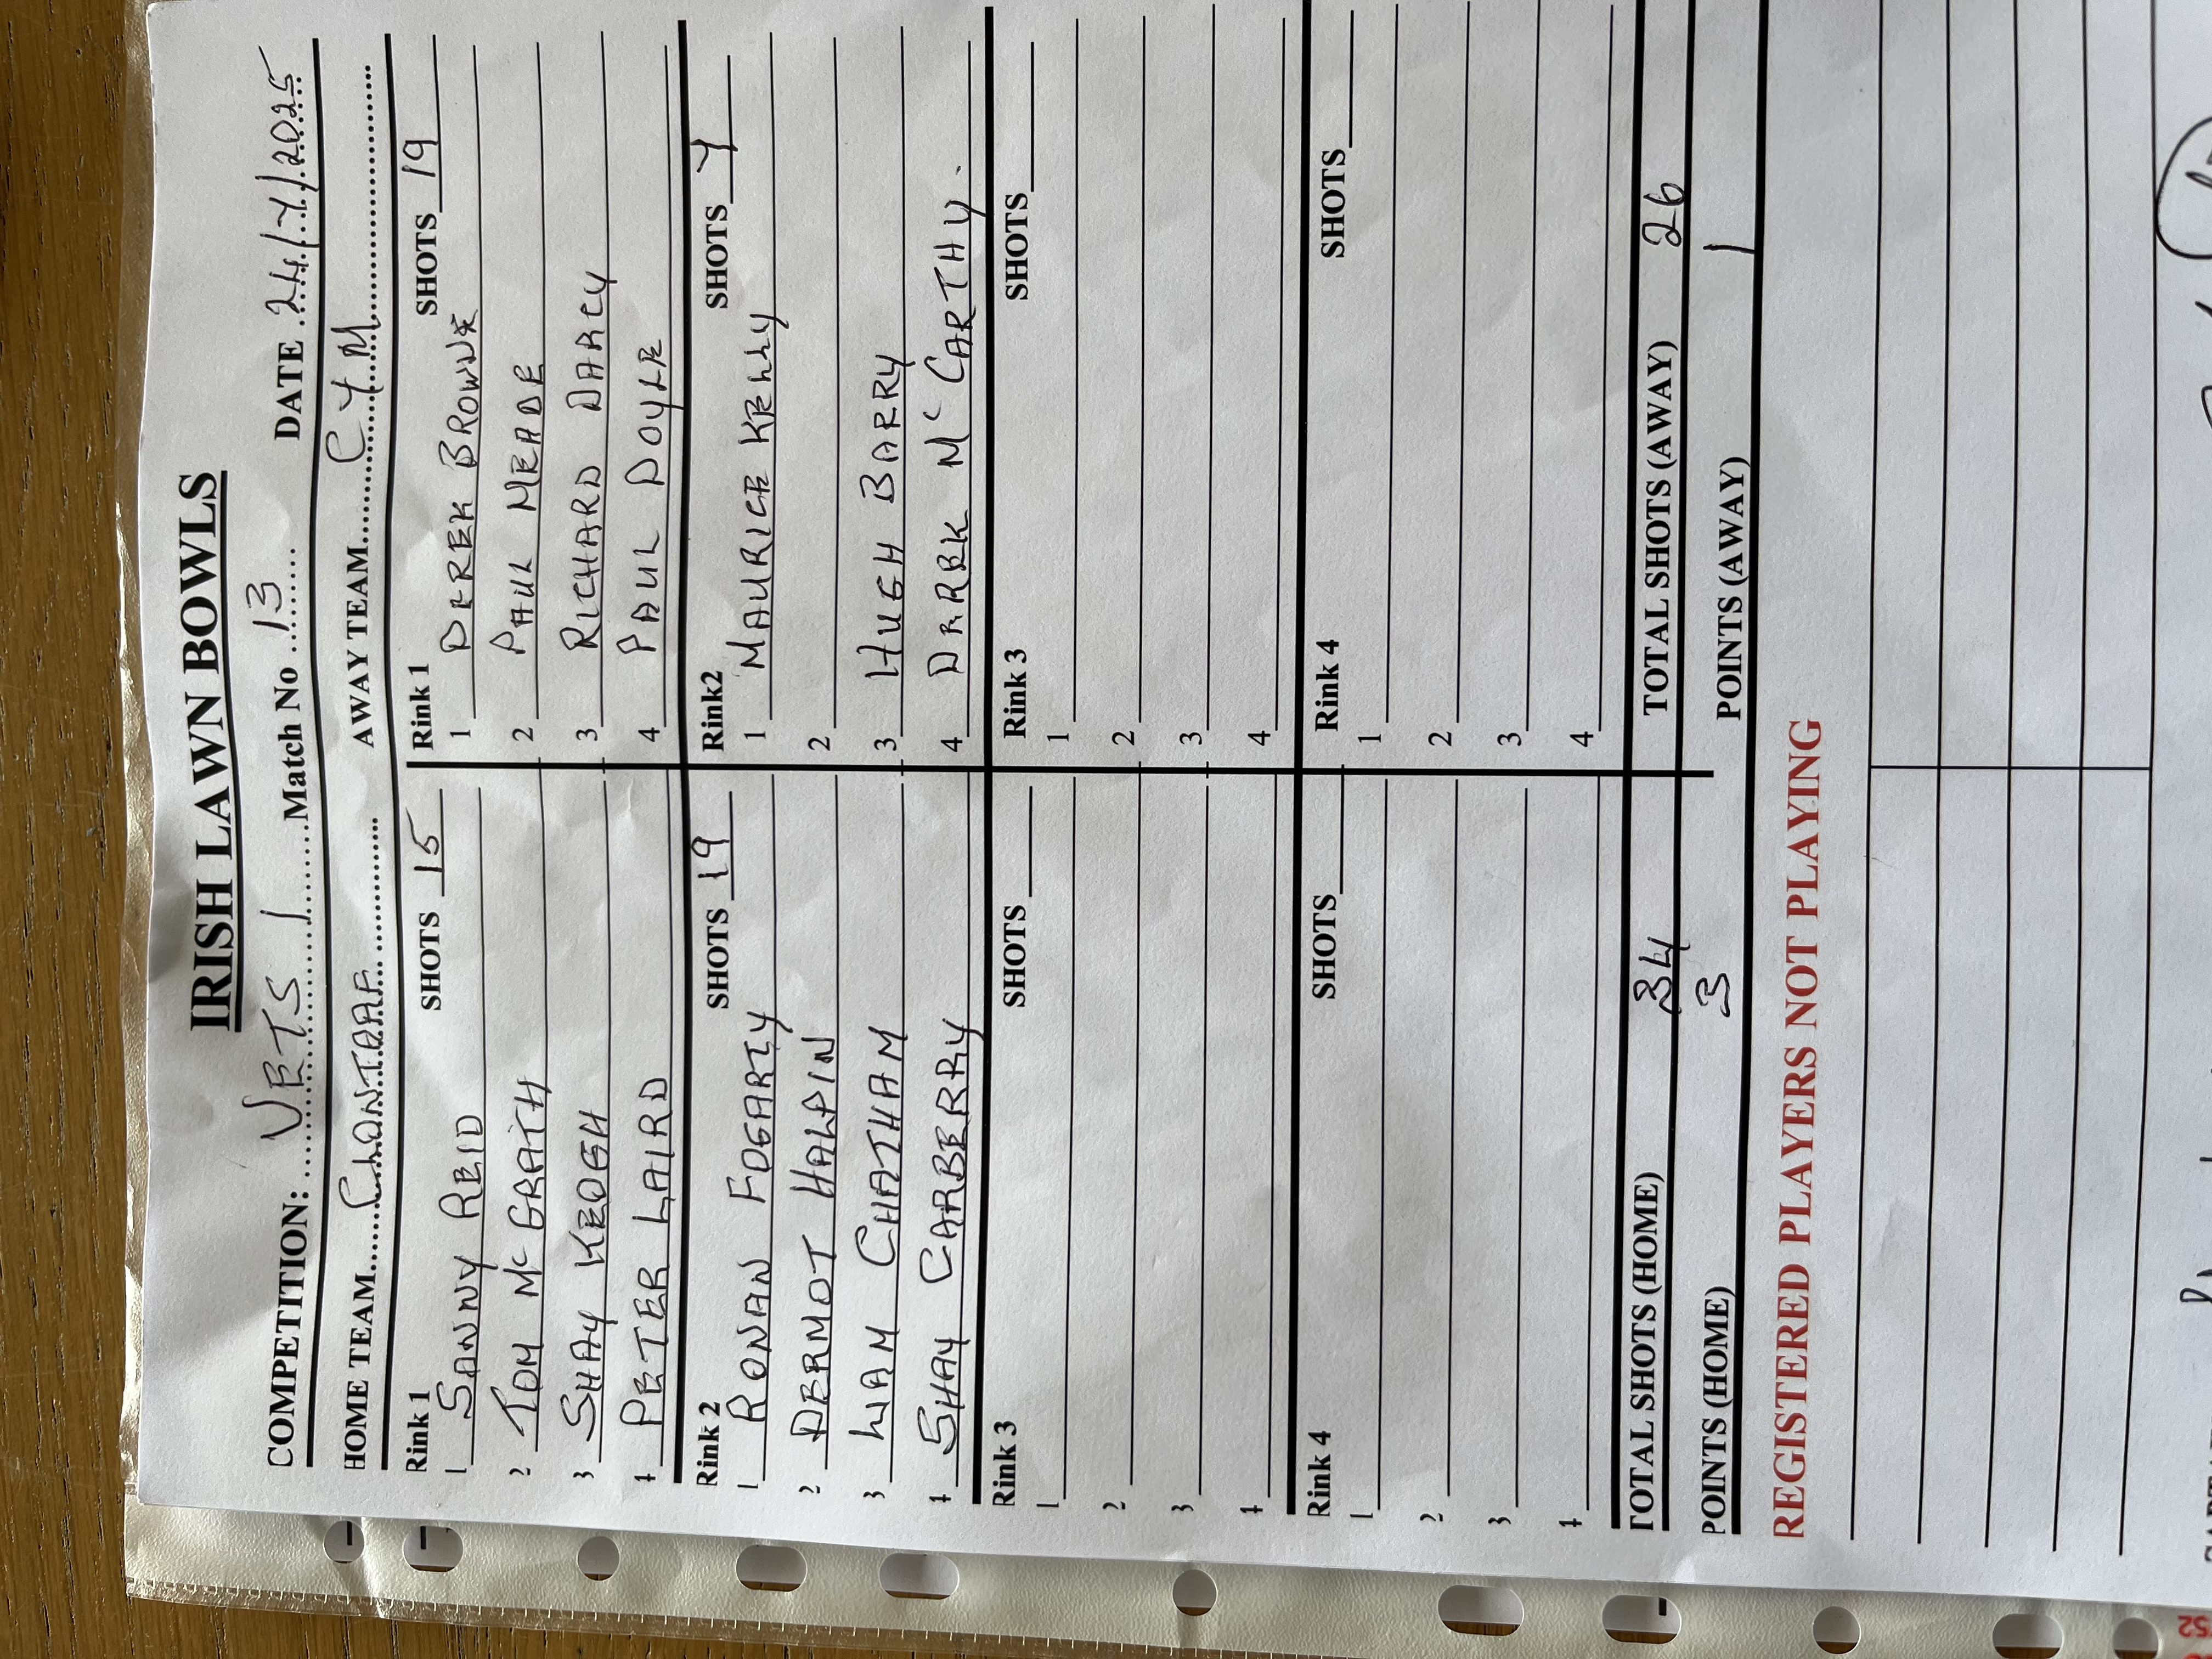 IRISH LAWN BOWLS
COMPETITION: VETS 1 Match No 13 DATE 24/7/2025
HOME TEAM CLONTARF AWAY TEAM C Y M
Rink 1 SHOTS 15
1 SANNY REID
2 TOM Mc GRATH
3 SHAY KEOGH
4 PETER LAIRD
Rink 1 SHOTS 19
1 DEREK BROWNE
2 PAUL MEADE
3 RICHARD DARCY
4 PAUL DOYLE
Rink 2 SHOTS 19
1 RONAN FOGARTY
2 DERMOT HALPIN
3 LIAM CHATHAM
4 SHAY CARBERRY
Rink2 SHOTS 7
1 MAURICE KELLY
2
3 HUGH BARRY
4 DEREK Mc CARTHY.
Rink 3 SHOTS
1
2
3
4
Rink 3 SHOTS
1
2
3
4
Rink 4 SHOTS
1
2
3
4
Rink 4 SHOTS
1
2
3
4
TOTAL SHOTS (HOME) 34 TOTAL SHOTS (AWAY) 26
POINTS (HOME) 3 POINTS (AWAY) 1
REGISTERED PLAYERS NOT PLAYING